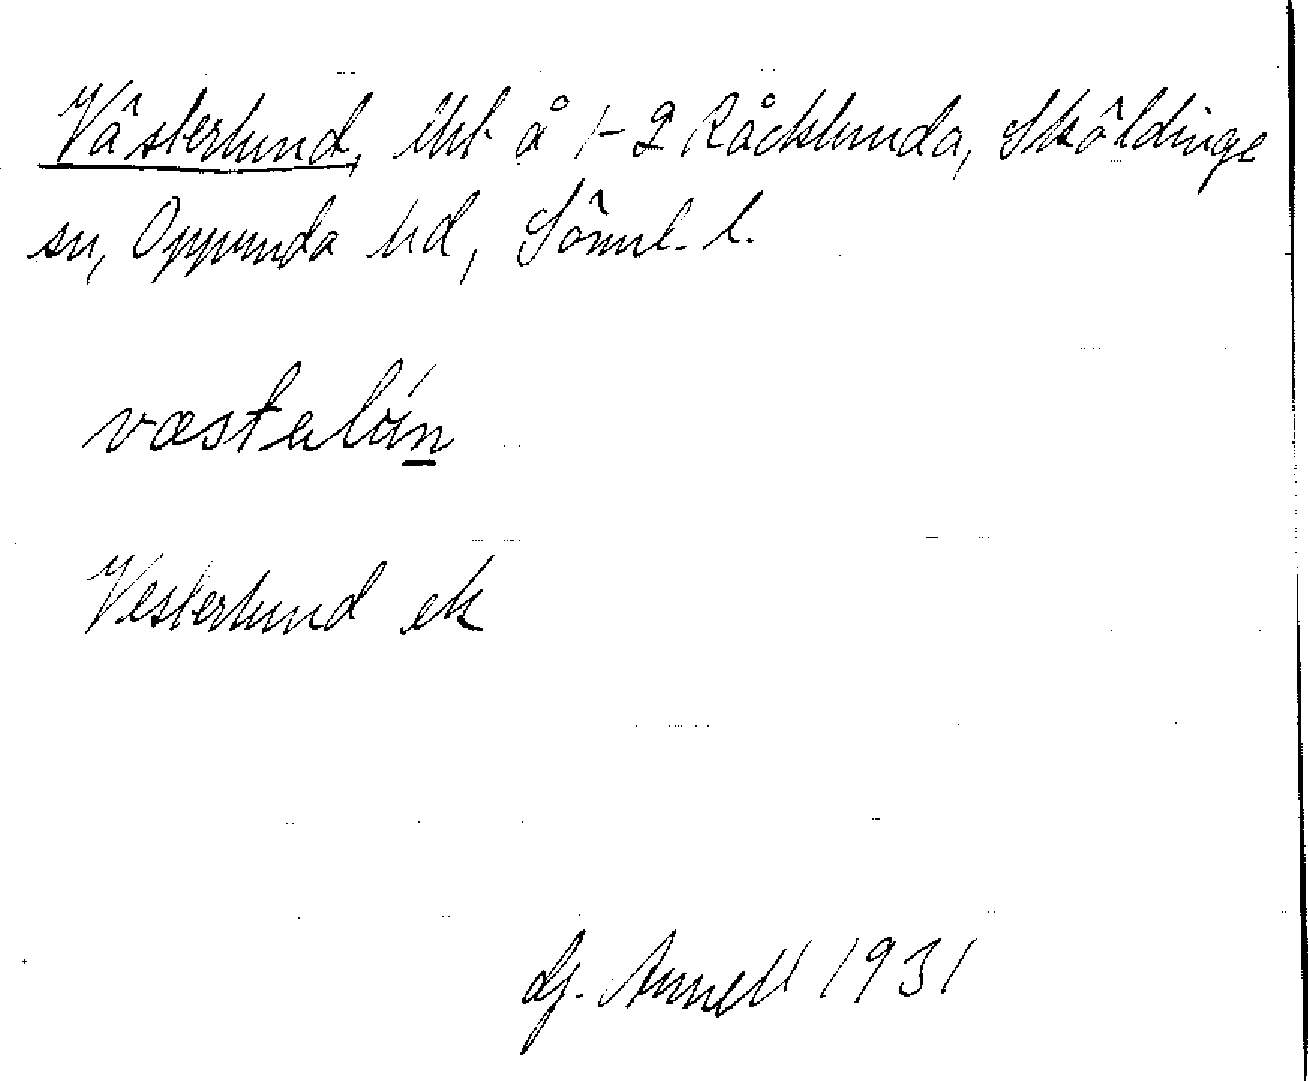 Västerlund, lht å 1-2 Råcklunda, Sköldinge
sn, Oppunda hd, Söml. l.
væstəlún
Vesterlund ek
Gj. Annell 1931